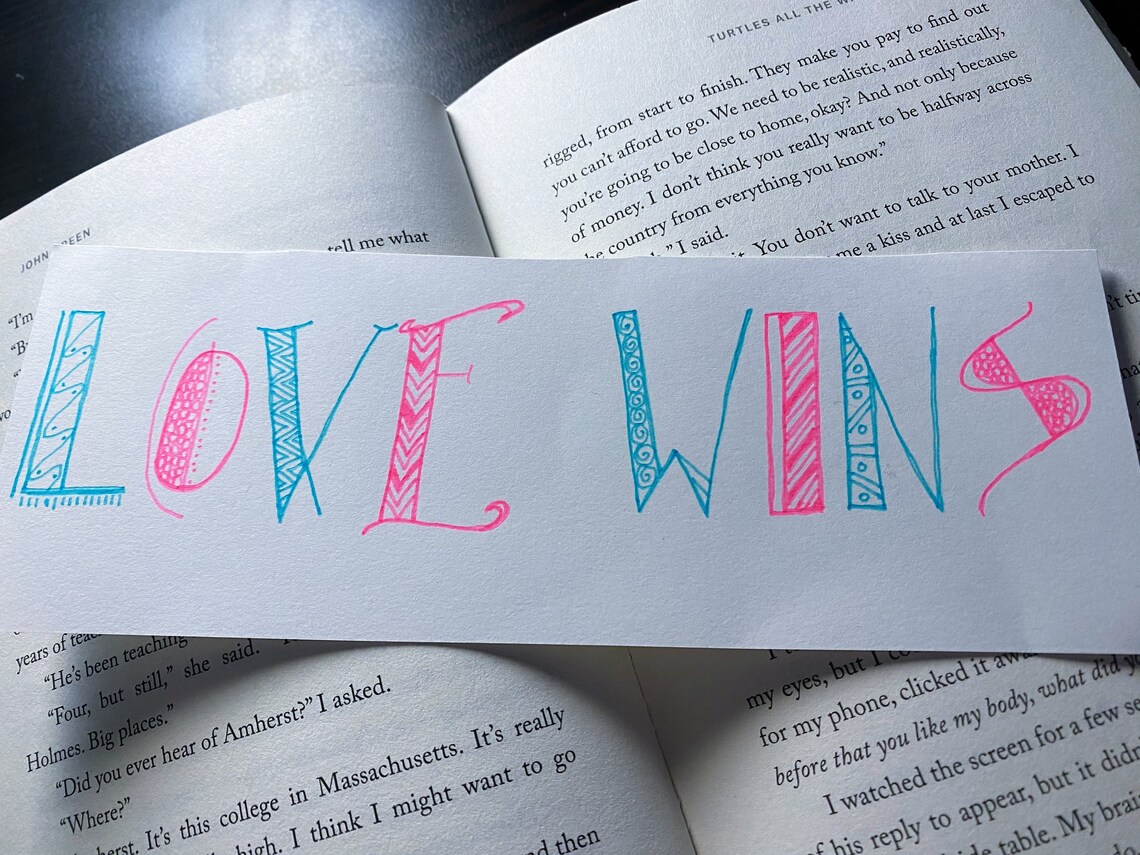 TURTLES ALL THE
rigged, from start to finish. They make you pay to find out
you can't afford to go. We need to be realistic, and realistically,
you're going to be close to home, okay? And not only because
of money. I don't think you really want to be halfway across
country from everything you know."
I said.
You don't want to talk to your mother. I
me a kiss and at last I escaped to
JOHN
tell me what
"I'm
LOVE WINS
years of
"He's been teaching
"Four, but still," she said.
Holmes. Big places."
"Did you ever hear of Amherst?" I asked.
"Where?"
It's this college in Massachusetts. It's really
high. I think I might want to go
then
my eyes, but I
for my phone, clicked it
before that you like my body, what did
I watched the screen for a few
his reply to appear, but it
table. My